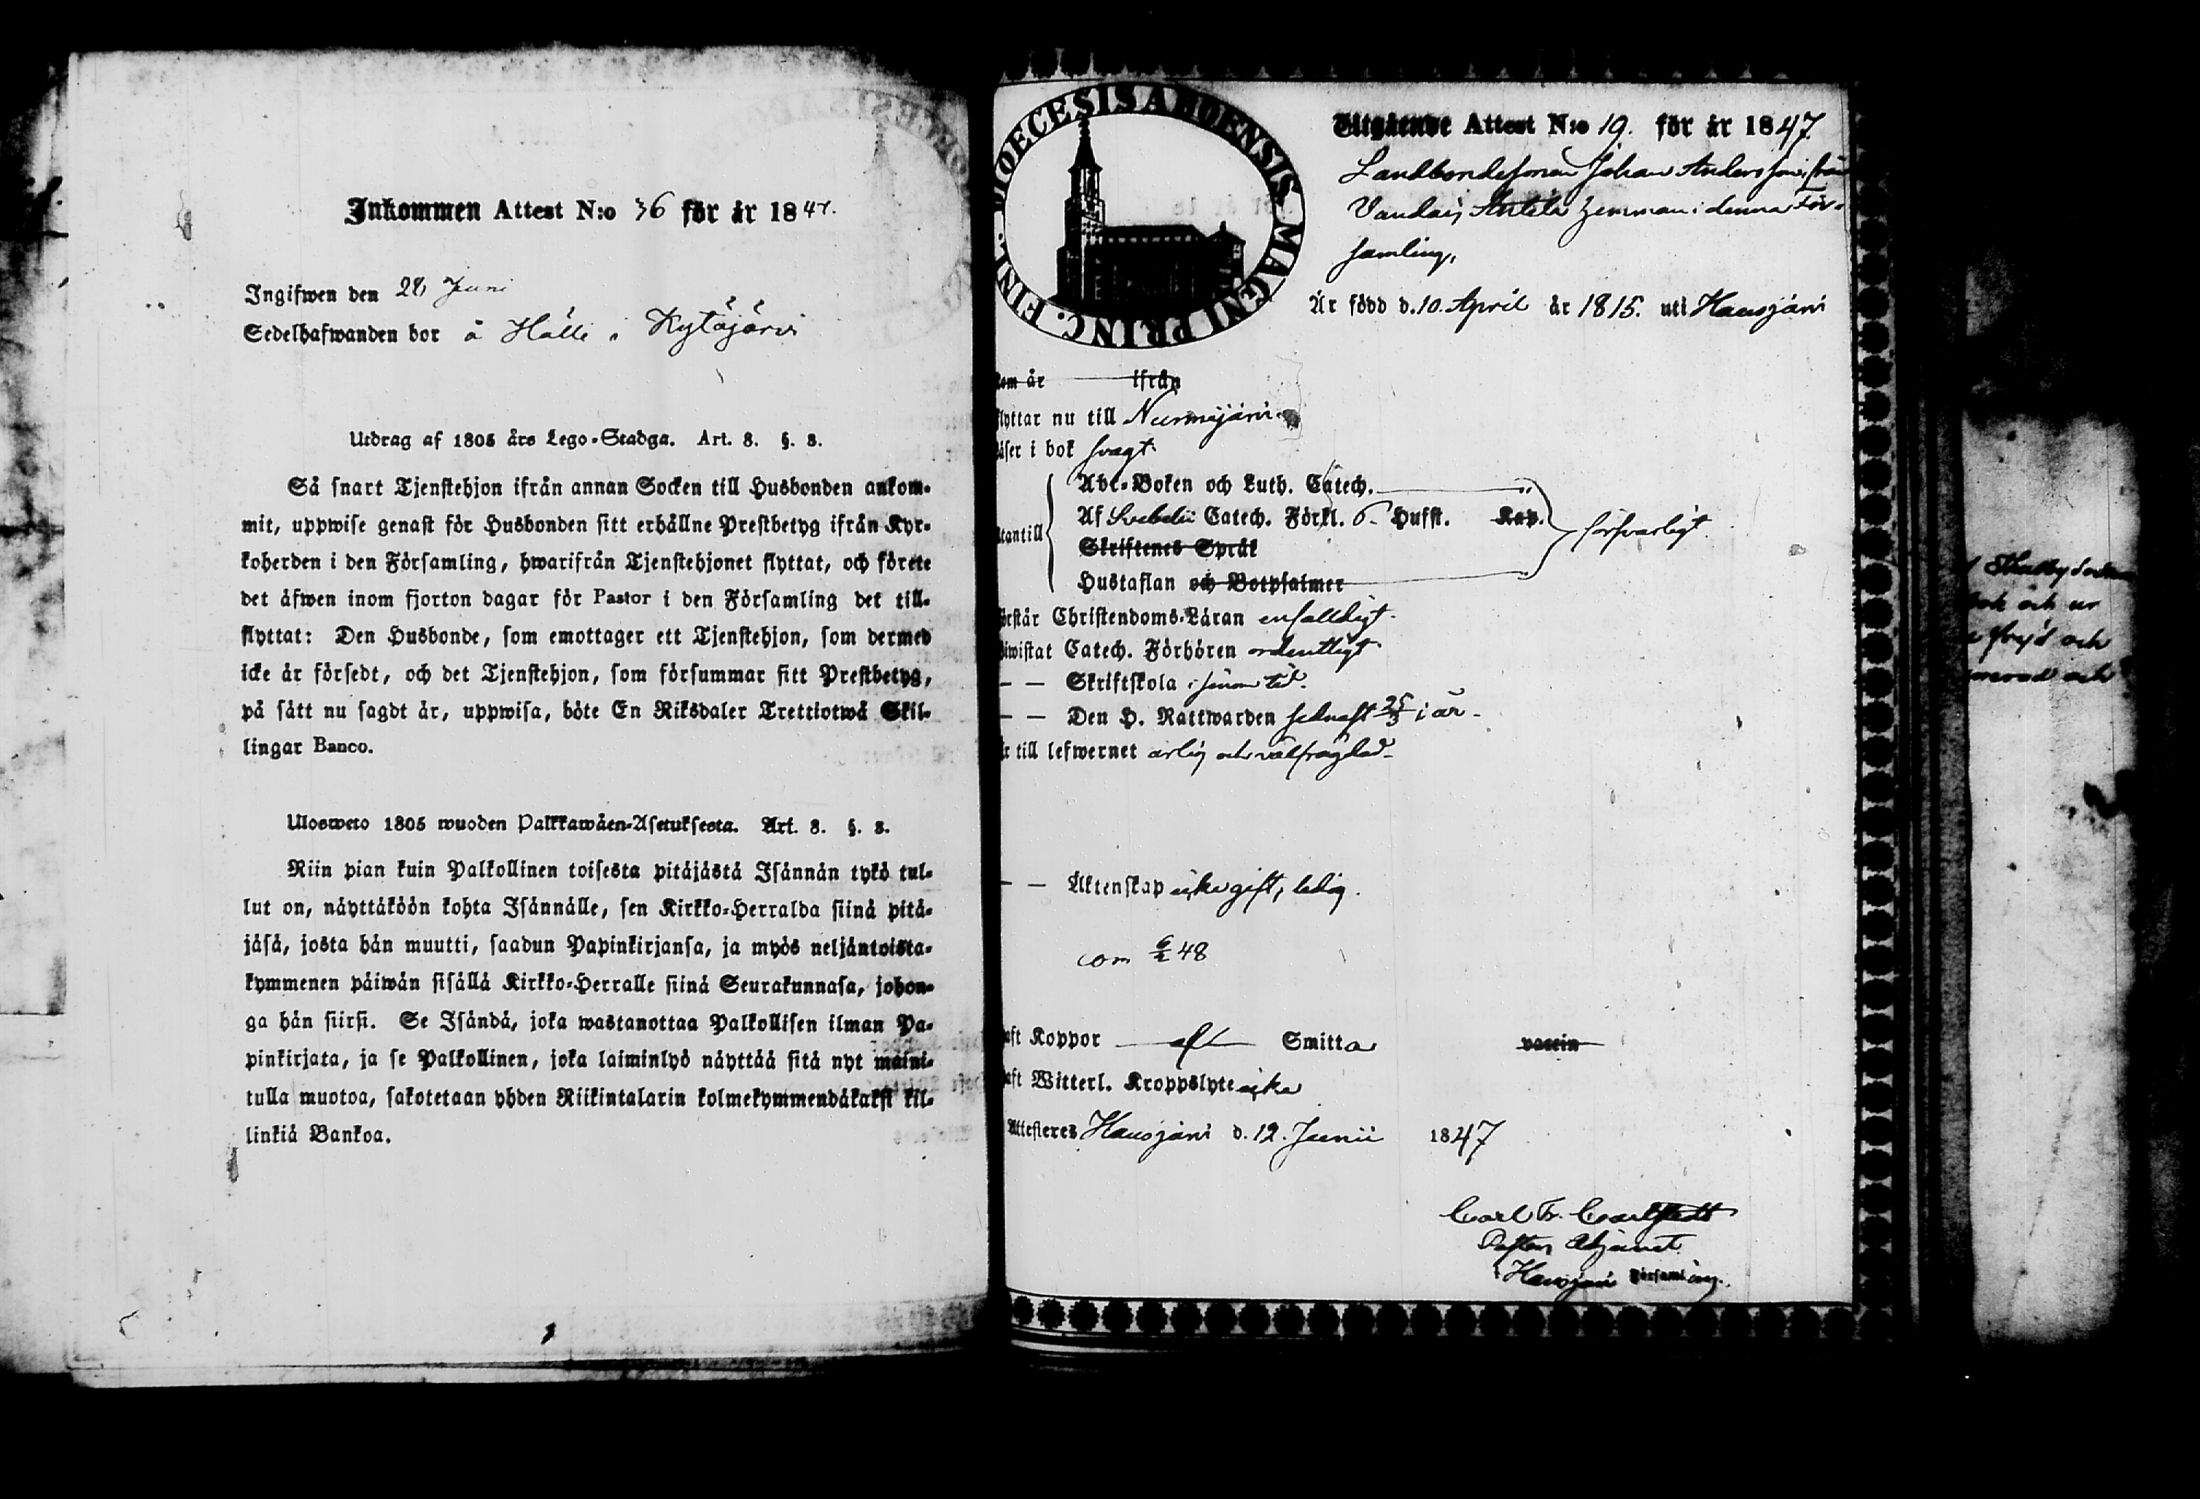 Inkommen Attest N:o 36 för år 1847.
Ingifwen den 28 Juni
Sedelhafwanden bor å Hälli i Kytäjärvi
Utdrag af 1805 års Lego-Stadga. Art. 8. §. 8.
Så snart Tjenstehjon ifrån annan Socken till Husbonden ankom-
mit, uppwise genast för Husbonden sitt erhållne Prestbetyg ifrån Kyr-
koherden i den Församling, hwarifrån Tjenstehjonet flyttat, och förete
det äfwen inom fjorton dagar för Pastor i den Församling det till-
flyttat: Den Husbonde, som emottager ett Tjenstehjon, som dermed
icke är försedt, och det Tjenstehjon, som försummar sitt Prestbetyg,
på sätt nu sagdt är, uppwisa, böte En Riksdaler Trettiotwå Skil-
lingar Banco.
Ulosweto 1805 wuoden Palkkawäen-Asetuksesta. Art. 8. §. 8.
Niin pian kuin Palkollinen toisesta pitäjästä Isännän tykö tul-
lut on, näyttäköön kohta Isännälle, sen Kirkko-Herralda siinä pitä-
jäsä, josta hän muutti, saadun Papinkirjansa, ja myös neljäntoista-
kymmenen päiwän sisällä Kirkko-Herralle siinä Seurakunnasa, johon-
ga hän siirsi. Se Isändä, joka wastanottaa Palkollisen ilman Pa-
pinkirjata, ja se Palkollinen, joka laiminlyö näyttää sitä nyt maini-
tulla muotoa, sakotetaan yhden Riikintalarin kolmekymmendäkaksi kil-
linkiä Bankoa.
DIOECESIS ABOENSIS MAGNI PRINC. FINL.
Utgående Attest N:o 19. för år 1847.
Landbondesonen Johan Andersson ifrån
Vandais Antela hemman i denna För-
samling,
Är född d. 10. April år 1815. uti Hausjärvi
kom år ifrån
flyttar nu till Nurmijärvi.
läser i bok svagt.
Abc-Boken och Luth. Catech.
Af Svebelii Catech. Förkl. 6. Hufst. Kap.
utantill försvarligt.
Skriftenes Språk
Hustaflan och Botpsalmer
förstår Christendoms-Läran enfaldigt.
biwistat Catech. Förhören ordentligt.
— — Skriftskola i sinom tid.
— — Den H. Nattwarden sednast 25/3 i år.
är till lefwernet ärlig och välfrägdad.
— — Äktenskap icke gift, ledig.
com 6/2 48
haft Koppor Smitta vaccin
haft Witterl. Kroppslyte icke
Attesteres Hausjärvi d. 12. Junii 1847
Carl Fr. Carlstedt
Pastors Adjunct
i Hausjärvi Församling.
bok och ur